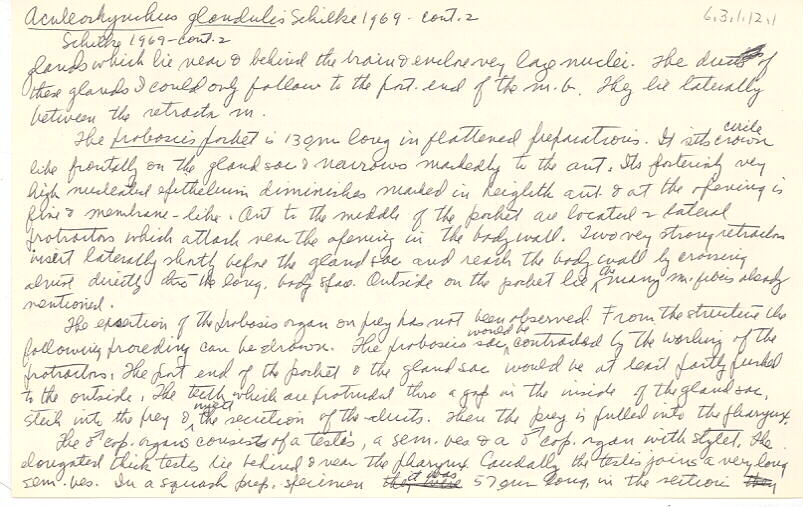 Aculeorhynchus glandulis Schilke 1969 - cont. 2 6.3.1.12.1
Schilke 1969 - cont. 2
glands which lie near & behind the brain & enclose very large nuclei. The ducts of
these glands I could only follow to the post. end of the m.b. They lie laterally
between the retractor m.
The proboscis pocket is 139µm long in flattened preparations. It sits crown circle
like frontally on the gland sac & narrows markedly to the ant. Its posteriorly very
high nucleated epithelium diminishes marked in heighth ant. & at the opening is
fine & membrane-like. Ant to the middle of the pocket are located 2 lateral
protractors which attach near the opening in the body wall. Two very strong retractors
insert laterally shortly before the gland sac and reach the body wall by crossing
almost directly thro the long. body sac. Outside on the pocket lie the many m. fibers already
mentioned.
The exsertion of the proboscis organ on prey has not been observed. From the structure the
following proceeding can be drawn. The proboscis sac would be contracted by the working of the
protractors. The post end of the pocket & the gland sac would be at least partly pushed
to the outside. The teeth which are protruded thro a gap in the inside of the gland sac,
stick into the prey & inject the secretion of the ducts. Then the prey is pulled into the pharynx.
The ♂ cop. organs consists of a testis, a sem. ves & a ♂ cop. organ with stylet. The
elongated thick testes lie behind & near the pharynx. Caudally the testis joins a very long
sem. ves. In a squash prep. specimen they were it was 57µm long, in the section they